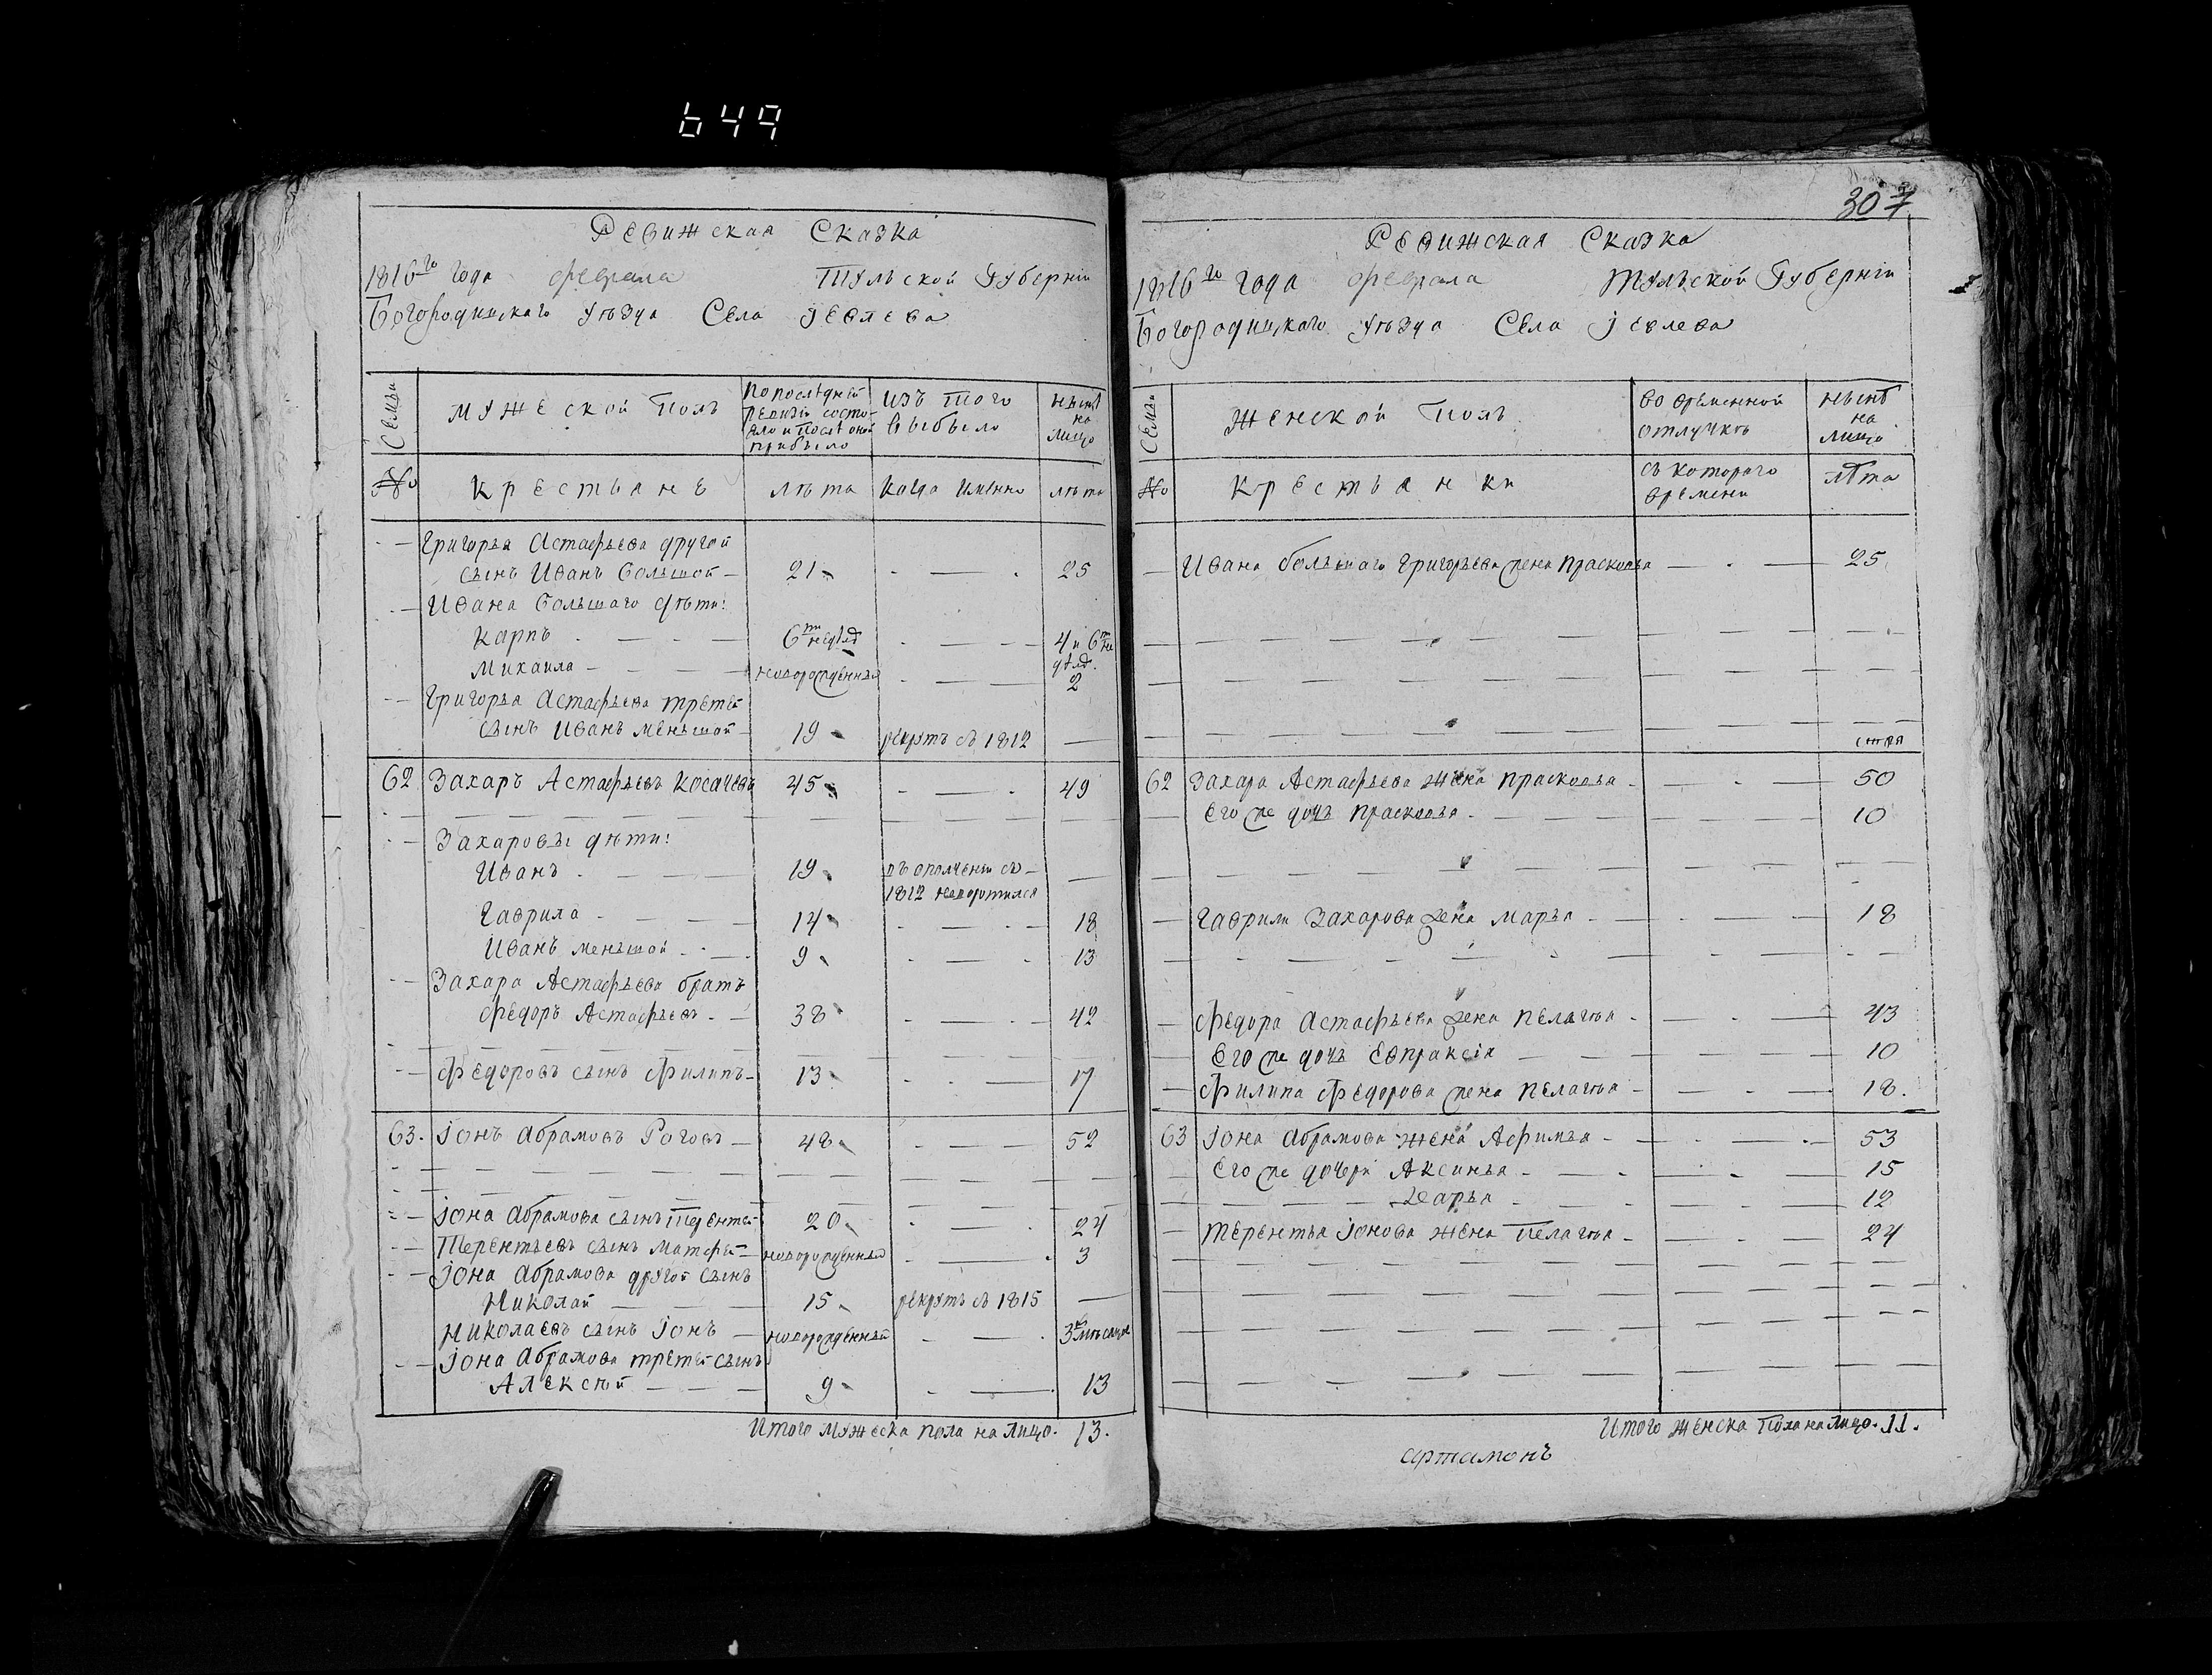 649
Ревижская Сказка
1816го года февраля Тульской Губернiи
Богородицкаго уѣзда Села Iевлева
Семьи
мужеской полъ
по последней ревизiи состояло и послѣ оной прибыло
изъ того выбыло
нынѣ на лицо
№
крестьяне
лѣта
когда именно
лѣта
Григорья Астафьева другой
сынъ Иванъ большой 21 25
Ивана большаго дѣти:
Карпъ 6ти недѣль 4 и 6ти недѣль.
Михаила новорожденный 2
Григорья Астафьева третей
сынъ Иванъ меньшой 19 рекрутъ съ 1812
62 Захаръ Астафьевъ Косачевъ 45 49
Захаровы дѣти:
Иванъ 19 въ ополченiи съ
1812 неворотился
Гаврила 14 18
Иванъ меньшой 9 13
Захара Астафьева братъ
Федоръ Астафьевъ 38 42
Федоровъ сынъ Филипъ 13 17
63. Iонъ Абрамовъ Роговъ 48 52
Iона Абрамова сынъ Терентей 20 24
Терентьевъ сынъ Матфей новорожденный 3
Iона Абрамова другой сынъ
Николай 15 рекрутъ съ 1815
Николаевъ сынъ Iонъ новорожденный 3 мѣсяца
Iона Абрамова третей сынъ
Алексѣй 9 13
Итого мужеска пола на лицо. 13.
307
Ревижская Сказка
1816го года февраля Тульской Губернiи
Богородицкаго уѣзда Села Iевлева
Семьи
Женской полъ
во временной отлучкѣ
нынѣ на лицо
№
Крестьянки
съ котораго времени
лѣта
Ивана большаго Григорьева жена Прасковья 25
62 Захара Астафьева жена Прасковья 50
Его же дочь Прасковья 10
Гаврилы Захарова жена Марья 18
Федора Астафьева жена Пелагѣя 43
Его же дочь Евпраксiя 10
Филипа Федорова жена Пелагѣя 18.
63 Iона Абрамова жена Афимья 53
Его же дочери Аксинья 15
Дарья 12
Терентья Iонова жена Пелагѣя 24
Итого женска пола на лицо. 11.
артамонъ